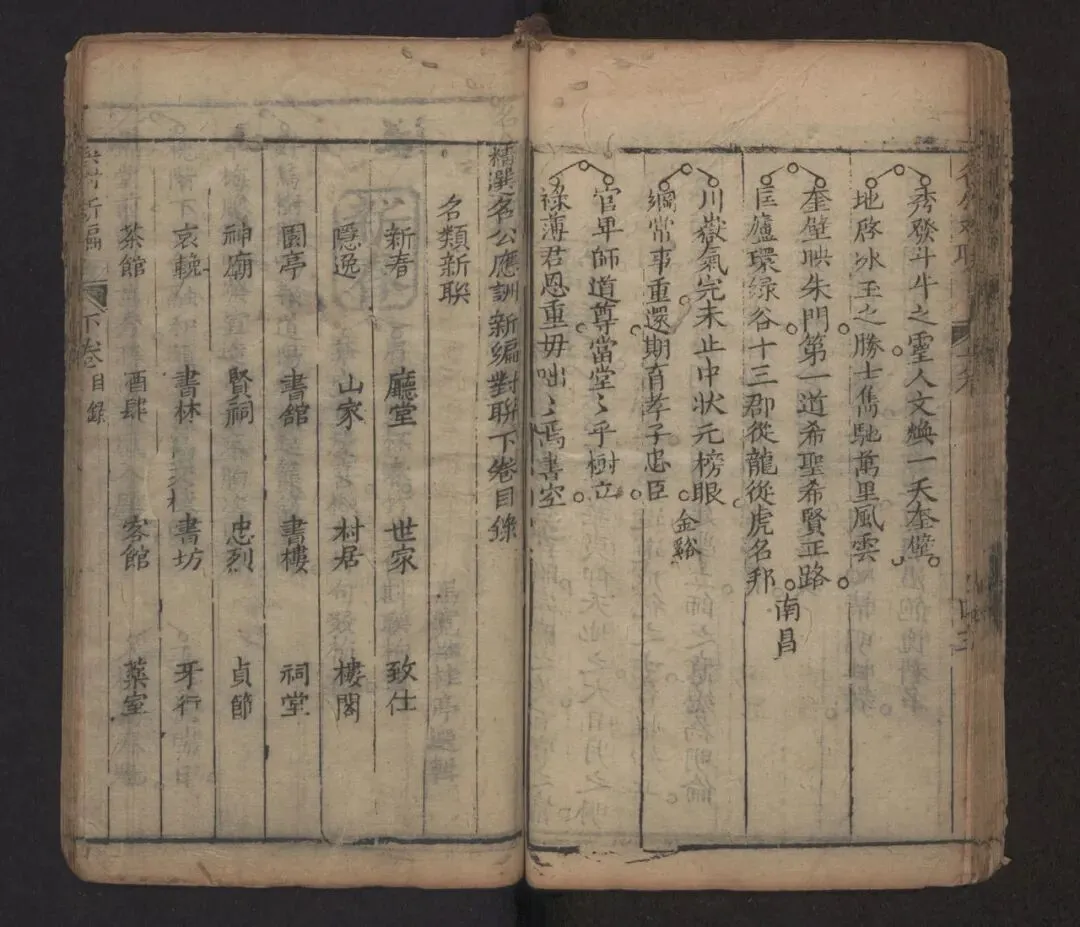 秀發斗牛之靈人文煥一天奎璧
地啓冰玉之勝士雋馳萬里風雲
奎壁映朱門第一道希聖希賢正路
匡廬環緑谷十三郡從龍從虎名邦
南昌
川嶽氣完未止中狀元榜眼
綱常事重還期育孝子忠臣
金谿
官卑師道尊當堂〻乎樹立
祿薄君恩重毋咄〻焉書空
精選名公應訓新編對聯下卷目錄
名類新聮
新春 廳堂 世家 致仕
隱逸 山家 村居 樓閣
園亭 書舘 書樓 祠堂
神廟 賢祠 忠烈 貞節
哀輓 書林 書坊 牙行
茶館 酒肆 客館 藥室
新編 下卷 目錄